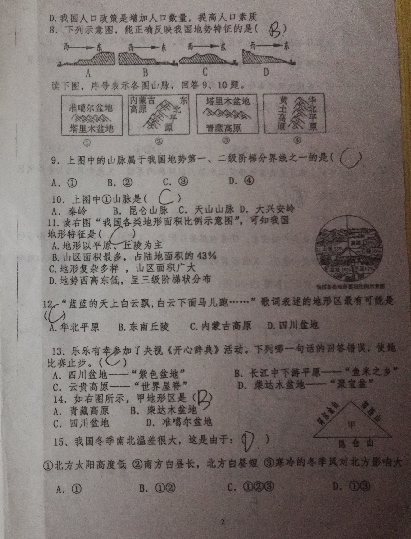 D.我国人口政策是增加人口数量，提高人口素质
8. 下列示意图，能正确反映我国地势特征的是( B )
西 东 西 东 西 东 西 东
A B C D
读下图，序号表示各图山脉，回答9、10题。
准噶尔盆地 塔里木盆地
内蒙古高原 东北平原
塔里木盆地 青藏高原
黄土高原 华北平原
① ② ③ ④
9. 上图中的山脉属于我国地势第一、二级阶梯分界线之一的是( )
A. ① B. ② C. ③ D. ④
10. 上图中①山脉是( C )
A. 秦岭 B. 昆仑山脉 C. 天山山脉 D. 大兴安岭
11. 读右图“我国各类地形面积比例示意图”，可知我国
地形特征是( )
A.地形以平原、丘陵为主
B.山区面积最多，占陆地面积的43%
C.地形复杂多样，山区面积广大
D.地势西高东低，呈三级阶梯状分布
12. “蓝蓝的天上白云飘，白云下面马儿跑……”歌词叙述的地形区最有可能是
A.华北平原 B.东南丘陵 C.内蒙古高原 D.四川盆地
13. 乐乐有幸参加了央视《开心辞典》活动。下列哪一句话的回答错误，使她
比赛止步。( )
A. 四川盆地——“紫色盆地” B. 长江中下游平原——“鱼米之乡”
C. 云贵高原——“世界屋脊” D. 柴达木盆地——“聚宝盆”
14. 如右图所示，甲地形区是( B )
A. 青藏高原 B. 柴达木盆地
C. 四川盆地 D. 准噶尔盆地
甲
昆仑山
15、我国冬季南北温差很大，这是由于：( D )
①北方太阳高度低 ②南方白昼长，北方白昼短 ③寒冷的冬季风对北方影响大
A. ① B. ①② C. ①②③ D. ①③